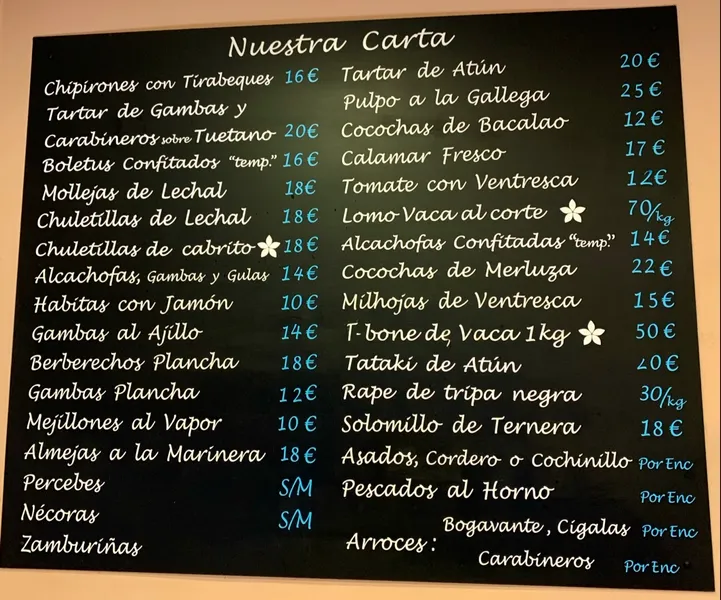 Nuestra Carta
Chipirones con Tirabeques 16€
Tartar de Gambas y
Carabineros sobre Tuetano 20€
Boletus Confitados "temp." 16€
Mollejas de Lechal 18€
Chuletillas de Lechal 18€
Chuletillas de cabrito 18€
Alcachofas, Gambas y Gulas 14€
Habitas con Jamón 10€
Gambas al Ajillo 14€
Berberechos Plancha 18€
Gambas Plancha 12€
Mejillones al Vapor 10€
Almejas a la Marinera 18€
Percebes S/M
Nécoras S/M
Zamburiñas
Tartar de Atún 20€
Pulpo a la Gallega 25€
Cocochas de Bacalao 12€
Calamar Fresco 17€
Tomate con Ventresca 12€
Lomo Vaca al corte 70/kg
Alcachofas Confitadas "temp." 14€
Cocochas de Merluza 22€
Milhojas de Ventresca 15€
T-bone de Vaca 1kg 50€
Tataki de Atún 20€
Rape de tripa negra 30/kg
Solomillo de Ternera 18€
Asados, Cordero o Cochinillo Por Enc
Pescados al Horno Por Enc
Bogavante, Cigalas Por Enc
Arroces:
Carabineros Por Enc